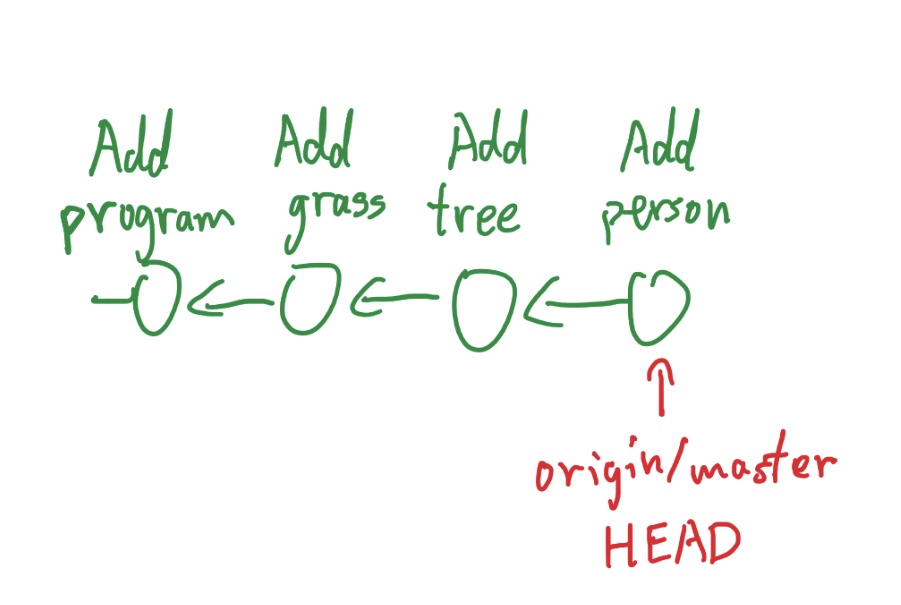 Add program
Add grass
Add tree
Add person
origin/master
HEAD